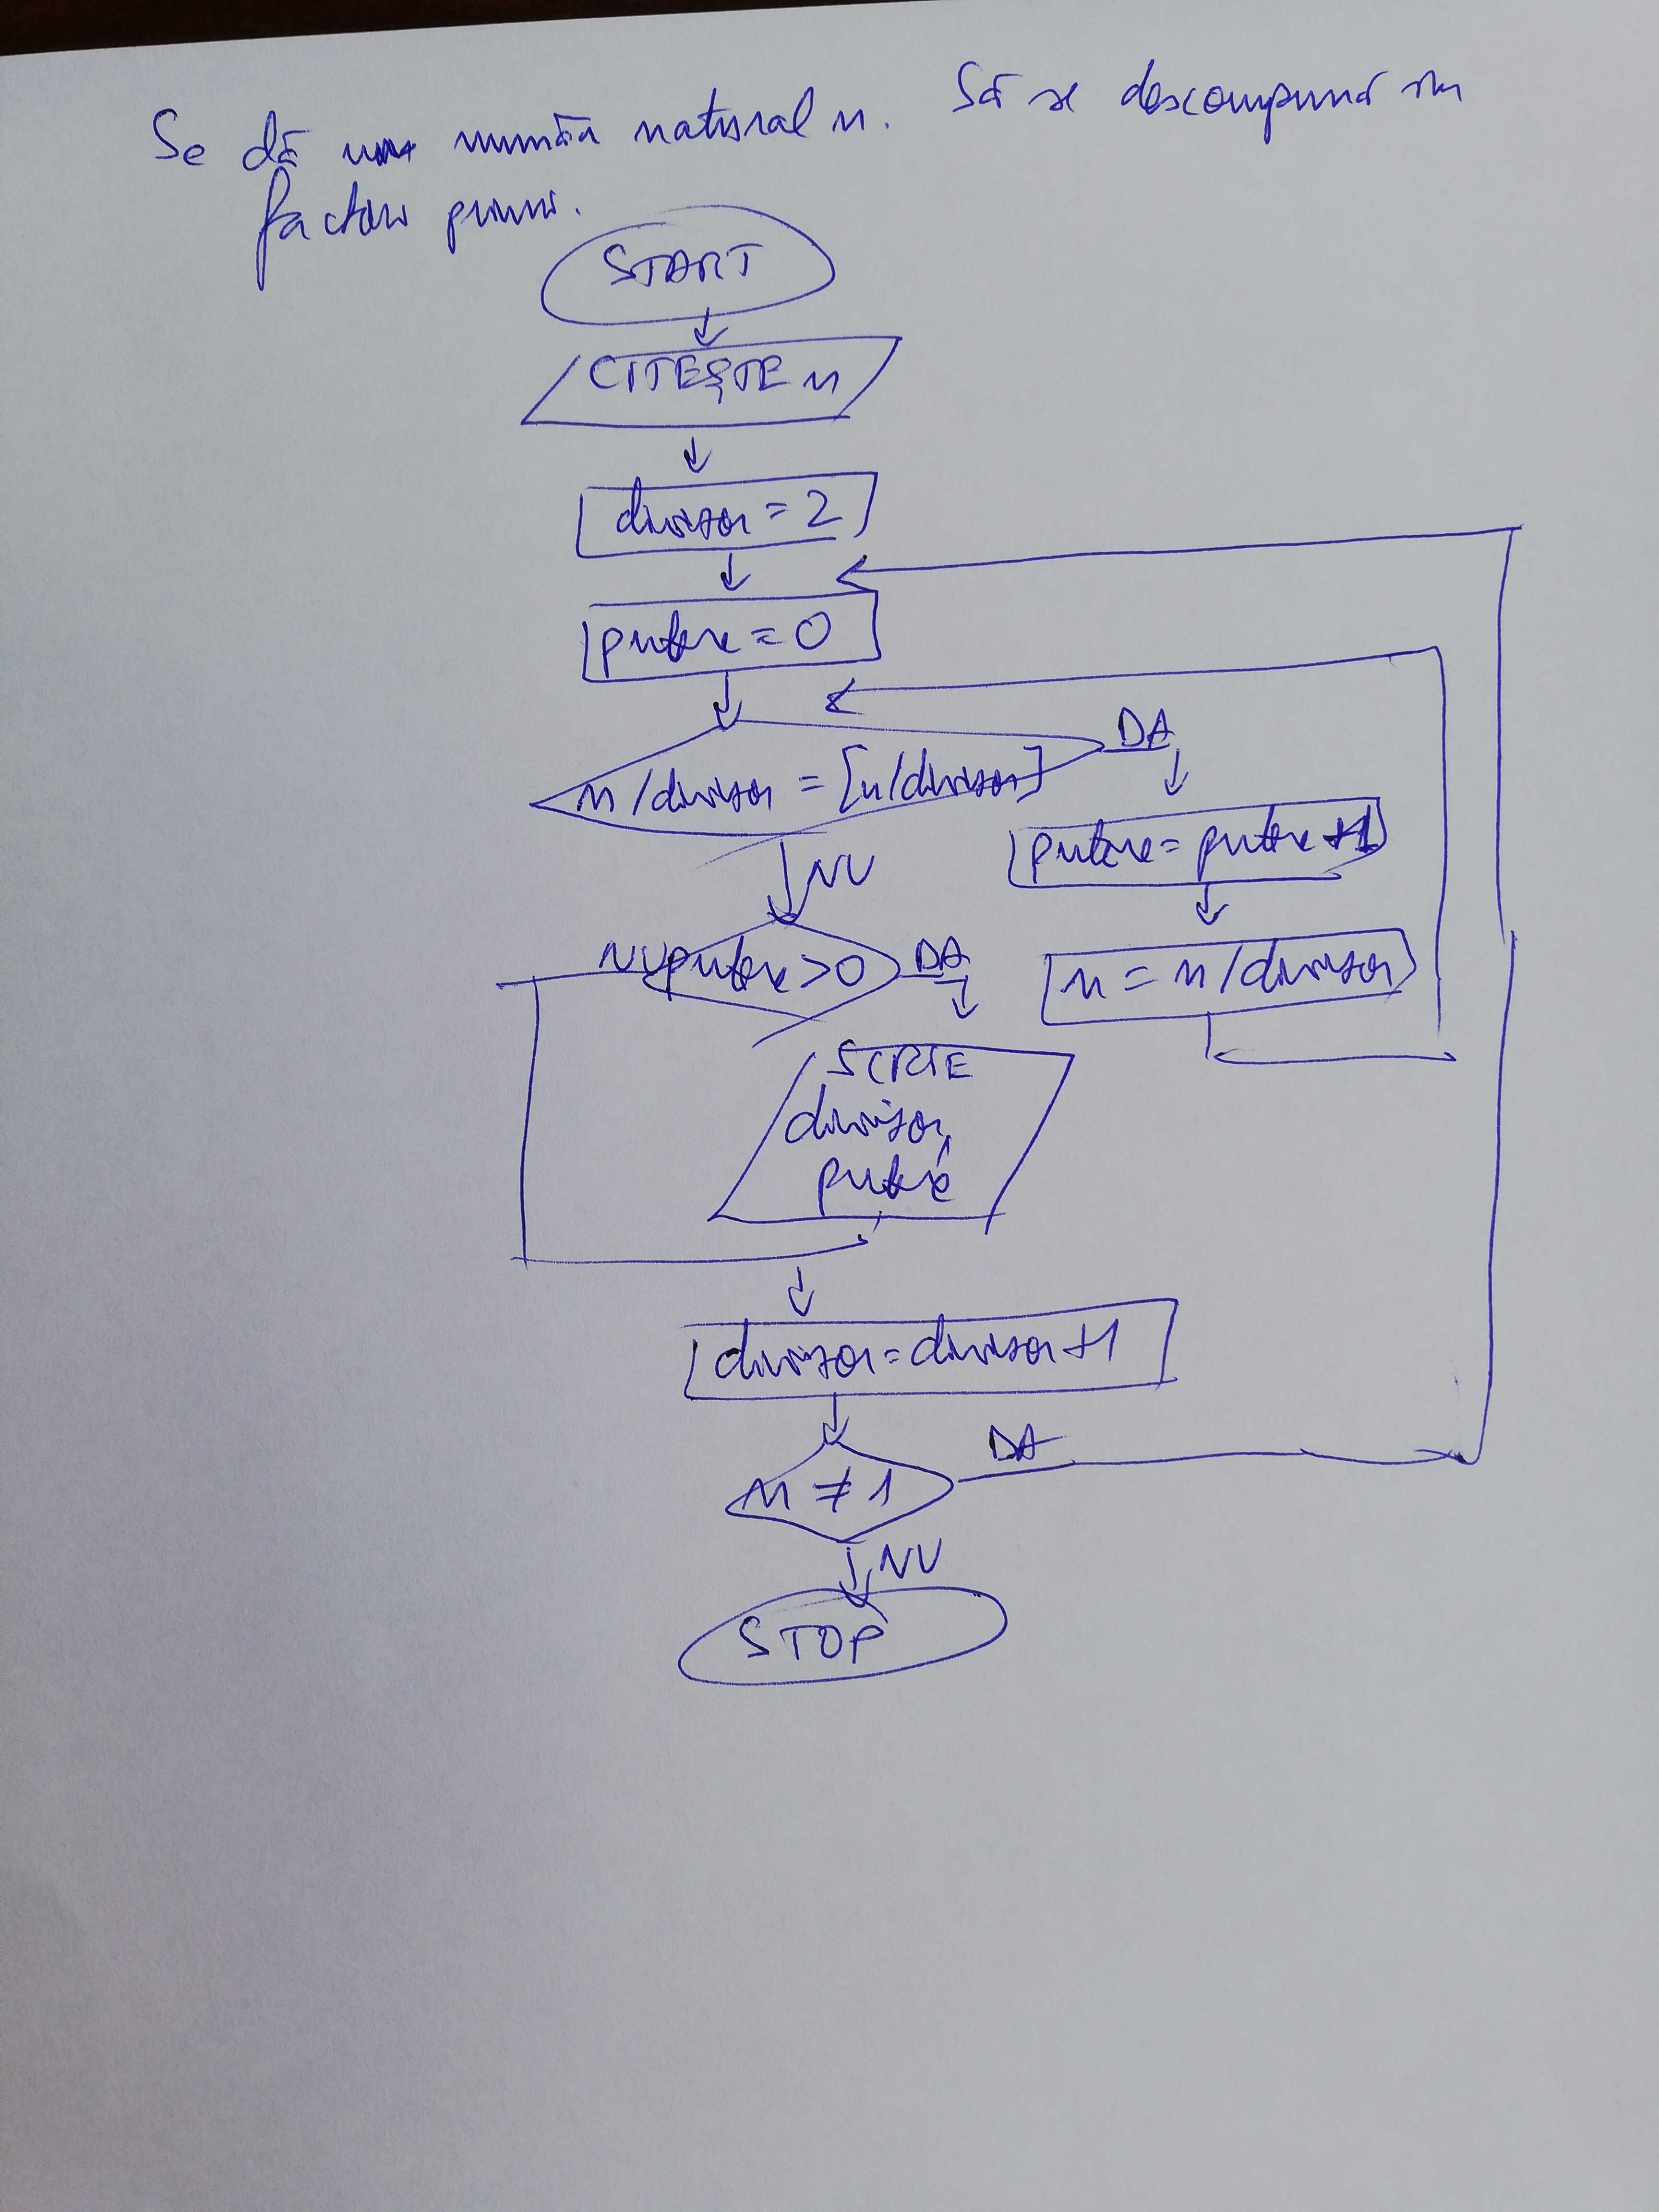 Se dă un număr natural n. Să se descompună în
factori primi.
START
CITEȘTE n
divizor = 2
putere = 0
n/divizor = [n/divizor]
DA
putere = putere +1
n = n/divizor
NU
putere > 0
NU
DA
SCRIE
divizor,
putere
divizor = divizor + 1
n ≠ 1
DA
NU
STOP